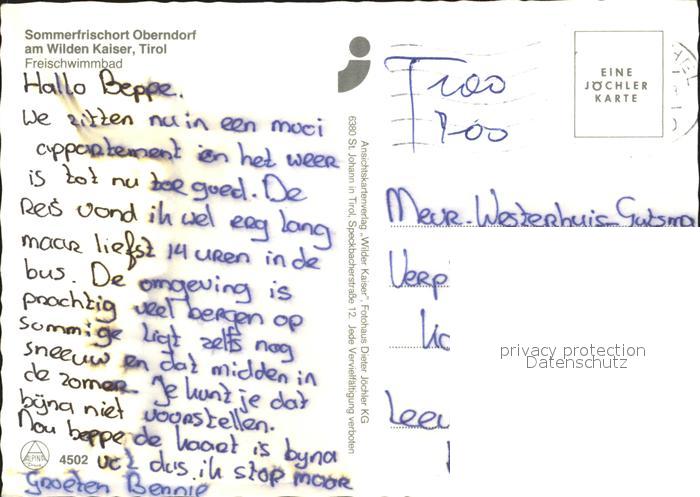 Sommerfrischort Oberndorf
am Wilden Kaiser, Tirol
Freischwimmbad
Hallo Beppe.
We zitten nu in een mooi
appartement en het weer
is tot nu toe goed. De
Reis vond ik wel erg lang
maar liefst 14 uren in de
bus. De omgeving is
prachtig veel bergen op
sommige ligt zelfs nog
sneeuw en dat midden in
de zomer. Je kunt je dat
bijna niet voorstellen.
Nou beppe de kaart is byna
vol dus ik stop maar
Groeten Bennie
4502
Ansichtskartenverlag „Wilder Kaiser", Fotohaus Dieter Jöchler KG
6380 St. Johann in Tirol, Speckbacherstraße 12. Jede Vervielfältigung verboten
EINE
JÖCHLER
KARTE
Mevr. Westerhuis-Gutsma
Verp
Leeu
privacy protection
Datenschutz